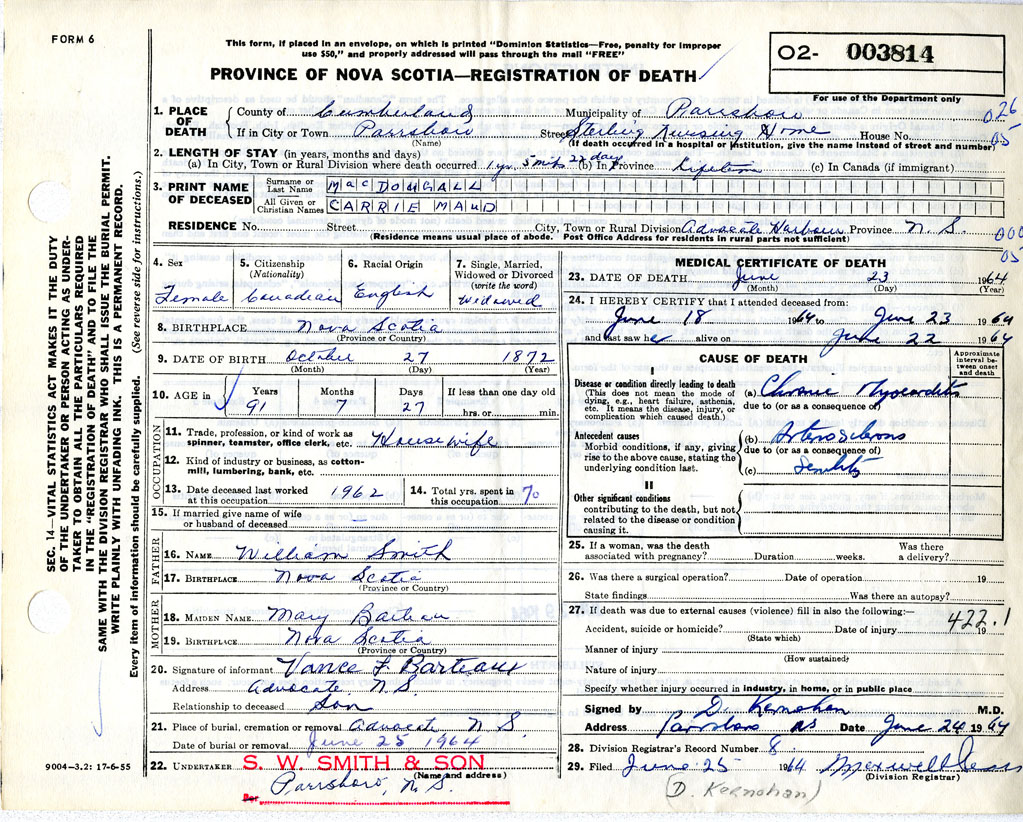 FORM 6
This form, if placed in an envelope, on which is printed "Dominion Statistics—Free, penalty for improper
use $50," and properly addressed will pass through the mail "FREE"
PROVINCE OF NOVA SCOTIA—REGISTRATION OF DEATH
02- 003814
For use of the Department only
SEC. 14—VITAL STATISTICS ACT MAKES IT THE DUTY
OF THE UNDERTAKER OR PERSON ACTING AS UNDER-
TAKER TO OBTAIN ALL THE PARTICULARS REQUIRED
IN THE "REGISTRATION OF DEATH" AND TO FILE THE
SAME WITH THE DIVISION REGISTRAR WHO SHALL ISSUE THE BURIAL PERMIT.
WRITE PLAINLY WITH UNFADING INK. THIS IS A PERMANENT RECORD.
Every item of information should be carefully supplied. (See reverse side for instructions.)
1. PLACE OF DEATH County of Cumberland Municipality of Parrsboro 026
If in City or Town Parrsboro Street Sterling Nursing Home House No. 05
(Name) (If death occurred in a hospital or institution, give the name instead of street and number)
2. LENGTH OF STAY (in years, months and days)
(a) In City, Town or Rural Division where death occurred 1 yr. 5 mths 22 days (b) In Province Lifetime (c) In Canada (if immigrant)
3. PRINT NAME OF DECEASED Surname or Last Name MacDOUGALL
All Given or Christian Names CARRIE MAUD
RESIDENCE No. Street City, Town or Rural Division Advocate Harbour Province N. S. 000
(Residence means usual place of abode. Post Office Address for residents in rural parts not sufficient) 05
4. Sex 5. Citizenship (Nationality) 6. Racial Origin 7. Single, Married, Widowed or Divorced (write the word)
Female Canadian English Widowed
8. BIRTHPLACE Nova Scotia
(Province or Country)
9. DATE OF BIRTH October 27 1872
(Month) (Day) (Year)
10. AGE in Years Months Days If less than one day old
91 7 27 hrs. or min.
OCCUPATION
11. Trade, profession, or kind of work as spinner, teamster, office clerk, etc. Housewife
12. Kind of industry or business, as cotton-mill, lumbering, bank, etc.
13. Date deceased last worked at this occupation 1962 14. Total yrs. spent in this occupation 70
15. If married give name of wife or husband of deceased —
FATHER
16. NAME William Smith
17. BIRTHPLACE Nova Scotia
(Province or Country)
MOTHER
18. MAIDEN NAME Mary Barteau
19. BIRTHPLACE Nova Scotia
(Province or Country)
20. Signature of informant Vance F. Barteaux
Address Advocate N. S.
Relationship to deceased Son
21. Place of burial, cremation or removal Advocate N. S.
Date of burial or removal June 25 1964
22. UNDERTAKER S. W. SMITH & SON
(Name and address)
Per Parrsboro, N. S.
9004-3.2: 17-6-55
MEDICAL CERTIFICATE OF DEATH
23. DATE OF DEATH June 23 1964
(Month) (Day) (Year)
24. I HEREBY CERTIFY that I attended deceased from:
June 18 1964 to June 23 1964
and last saw her alive on June 22 1964
CAUSE OF DEATH
Approximate interval between onset and death
I
Disease or condition directly leading to death (a) Chronic Myocarditis
(This does not mean the mode of dying, e.g., heart failure, asthenia, etc. It means the disease, injury, or complication which caused death.)
due to (or as a consequence of)
Antecedent causes (b) Arteriosclerosis
Morbid conditions, if any, giving rise to the above cause, stating the underlying condition last.
due to (or as a consequence of)
(c) Senility
II
Other significant conditions
contributing to the death, but not related to the disease or condition causing it.
25. If a woman, was the death associated with pregnancy? Duration weeks. Was there a delivery?
26. Was there a surgical operation? Date of operation 19
State findings Was there an autopsy?
27. If death was due to external causes (violence) fill in also the following:—
422.1
Accident, suicide or homicide? Date of injury 19
(State which)
Manner of injury
(How sustained)
Nature of injury
Specify whether injury occurred in industry, in home, or in public place
Signed by D. Kernohan M.D.
Address Parrsboro NS Date June 24 1964
28. Division Registrar's Record Number 8
29. Filed June 25 1964 Maxwell
(Division Registrar)
(D. Kernohan)